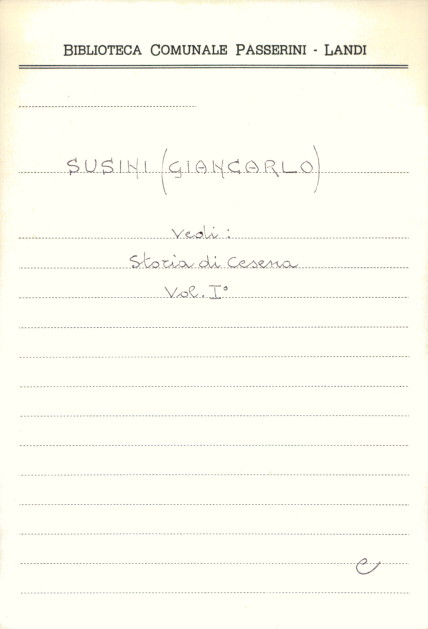 BIBLIOTECA COMUNALE PASSERINI - LANDI
SUSINI (GIANCARLO)
Vedi:
Storia di Cesena
Vol. I°
C